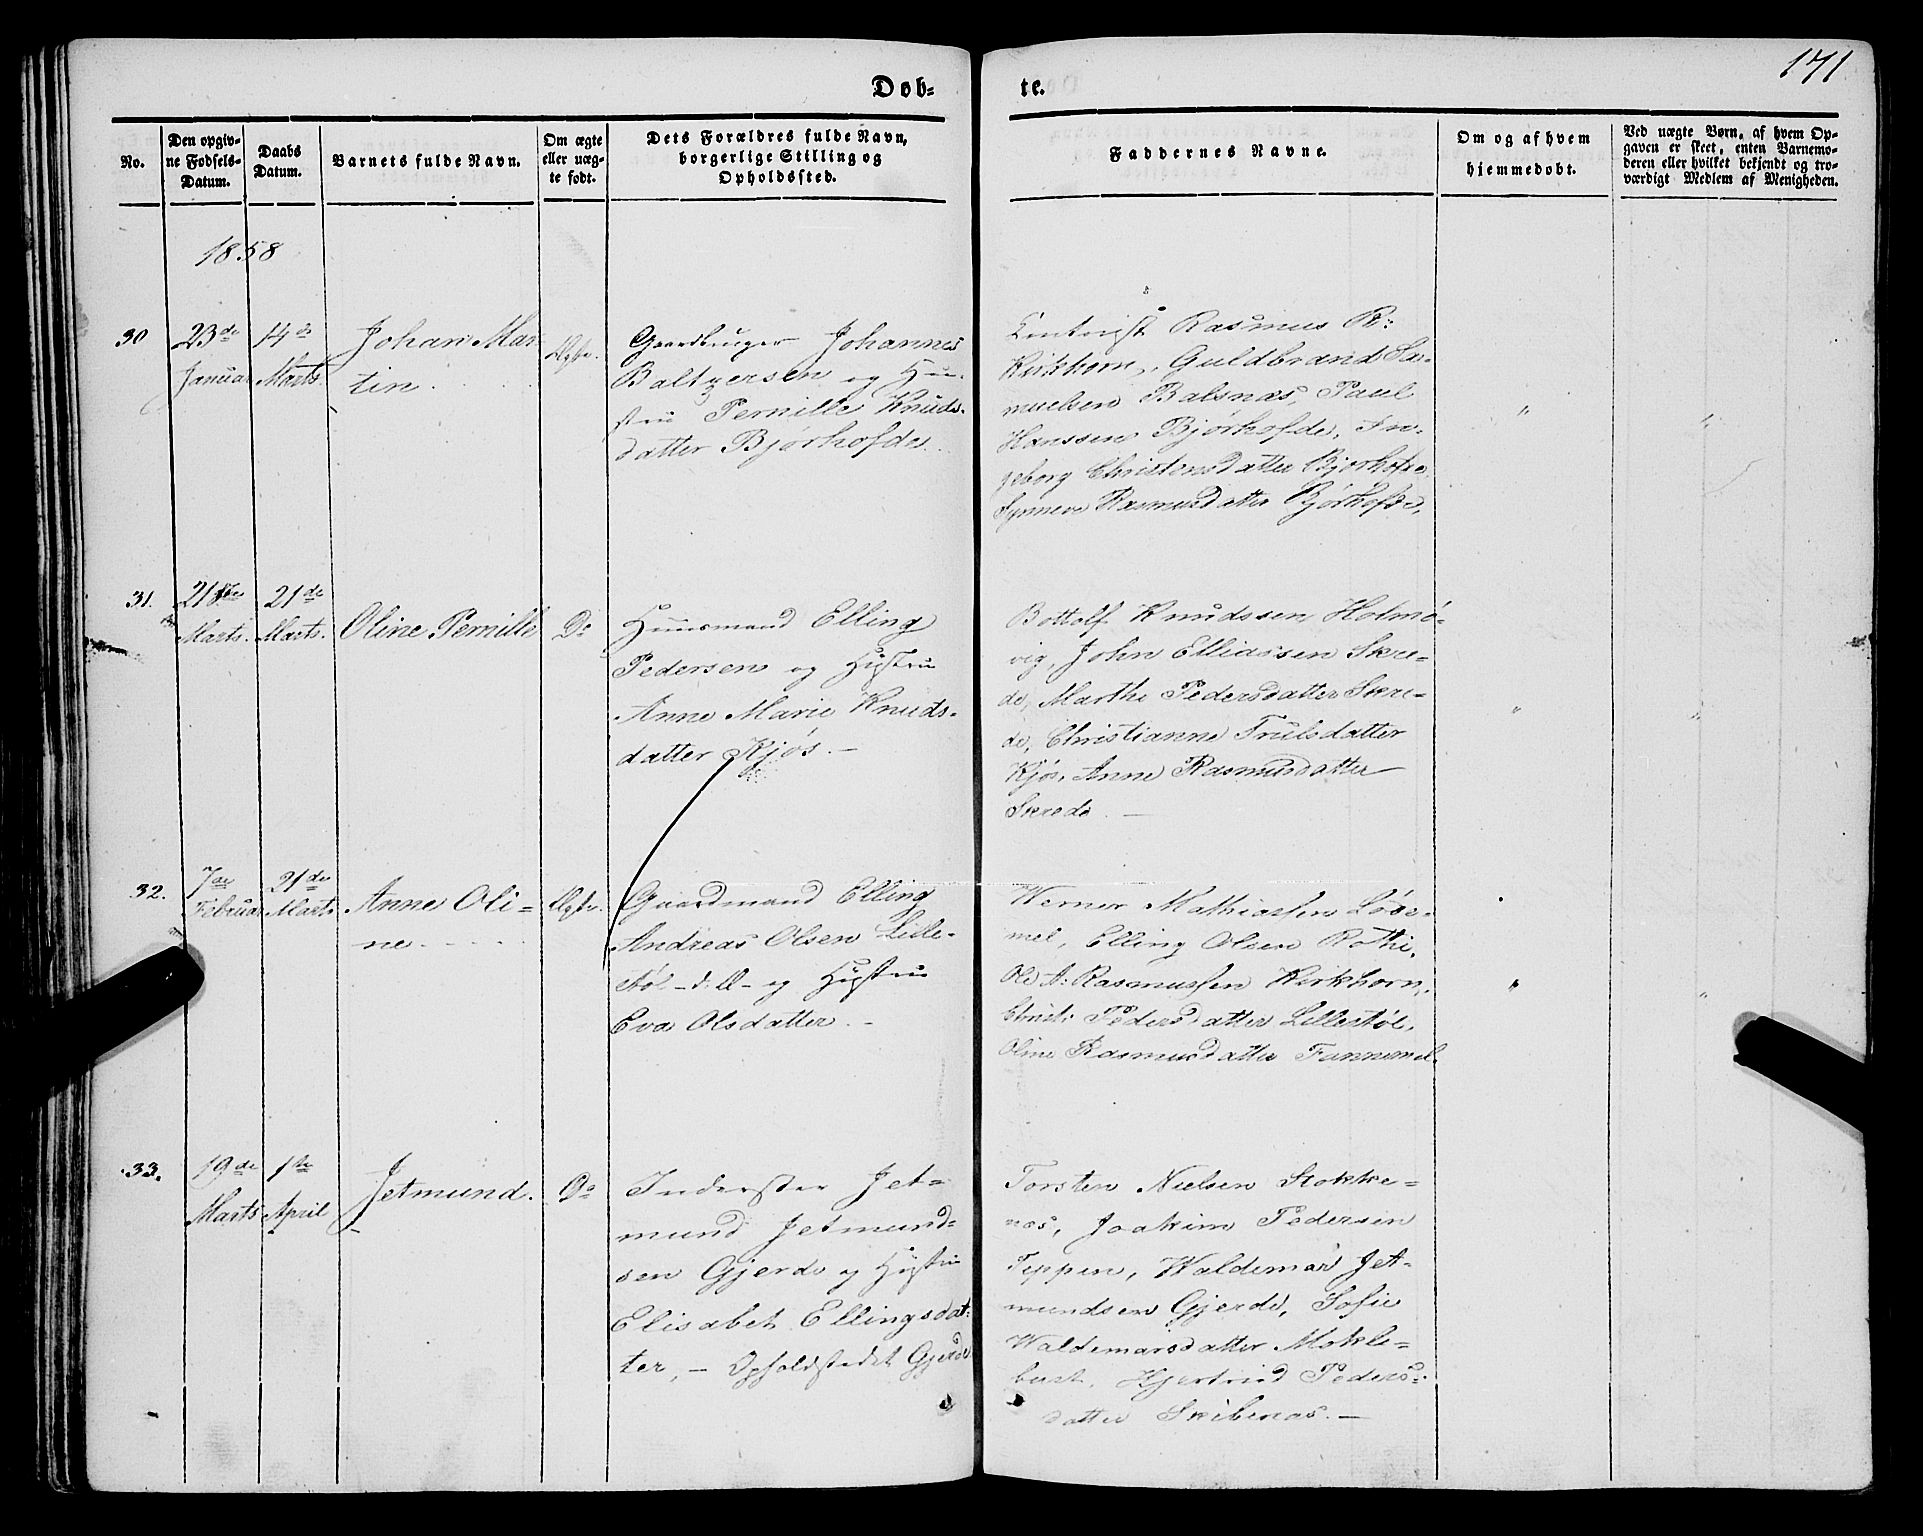 171
Døb-
te.
No.
Den opgiv-
ne Fødsels-
Datum.
Daabs
Datum.
Barnets fulde Navn.
Om ægte
eller uæg-
te født.
Dets Forældres fulde Navn,
borgerlige Stilling og
Opholdssted.
Faddernes Navne.
Om og af hvem
hjemmedøbt.
Ved uægte Børn, af hvem Op-
gaven er skeet, enten Barnemo-
deren eller hvilket bekjendt og tro-
værdigt Medlem af Menigheden.
1858
30
23de
Januar
14de
Marts.
Johan Mar-
tin.
Ægte.
Gaardbruger Johannes
Baltzersen og Hu-
stru Pernille Knuds-
datter Bjørhofde.
Rasmus R:
Kirkhorn, Guldbrand Sa-
muelsen Balsnæs, Paul
Hanssen Bjørhofde, In-
geborg Christensdatter Bjørhofde
Synneve Rasmusdatter Bjørhofde,
"
"
31.
21de
Marts.
21de
Marts.
Oline Pernille
Do
Huusmand Elling
Pedersen og Hustru
Anne Marie Knuds-
datter Kjøs. —
Bottolf Knudssen Holmø-
vig, John Elliassen Skre-
de, Marthe Pedersdatter Skre-
de, Christianne Trulsdatter
Kjøs, Anne Rasmusdatter
Skrede. —
"
"
32.
7de
Februar
21de
Marts
Anne Oli-
ne.
Ægte.
Gaardmand Elling
Andreas Olsen Lille-
støl - d. Æ - og Hustru
Eva Olsdatter. —
Werner Mathiassen Løse-
mel, Elling Olsen Rothe,
Ole A: Rasmussen Kirkhorn,
Christi Pedersdatter Lillestøl,
Oline Rasmusdatter Fannemel.
"
"
33.
19de
Marts
1ste
April
Jetmund.
Do
Inderster Jet-
mund Jetmund-
sen Gjerde og Hustru
Elisabet Ellingsdat-
ter, — Opholdstedet Gjerde
Torsten Nielsen Stokke-
næs, Joakim Pedersen
Teppen, Waldemar Jet-
mundsen Gjerde, Sofie
Waldemarsdatter Mokle-
bust, Kjertrud Peders-
datter Skibenæs. —